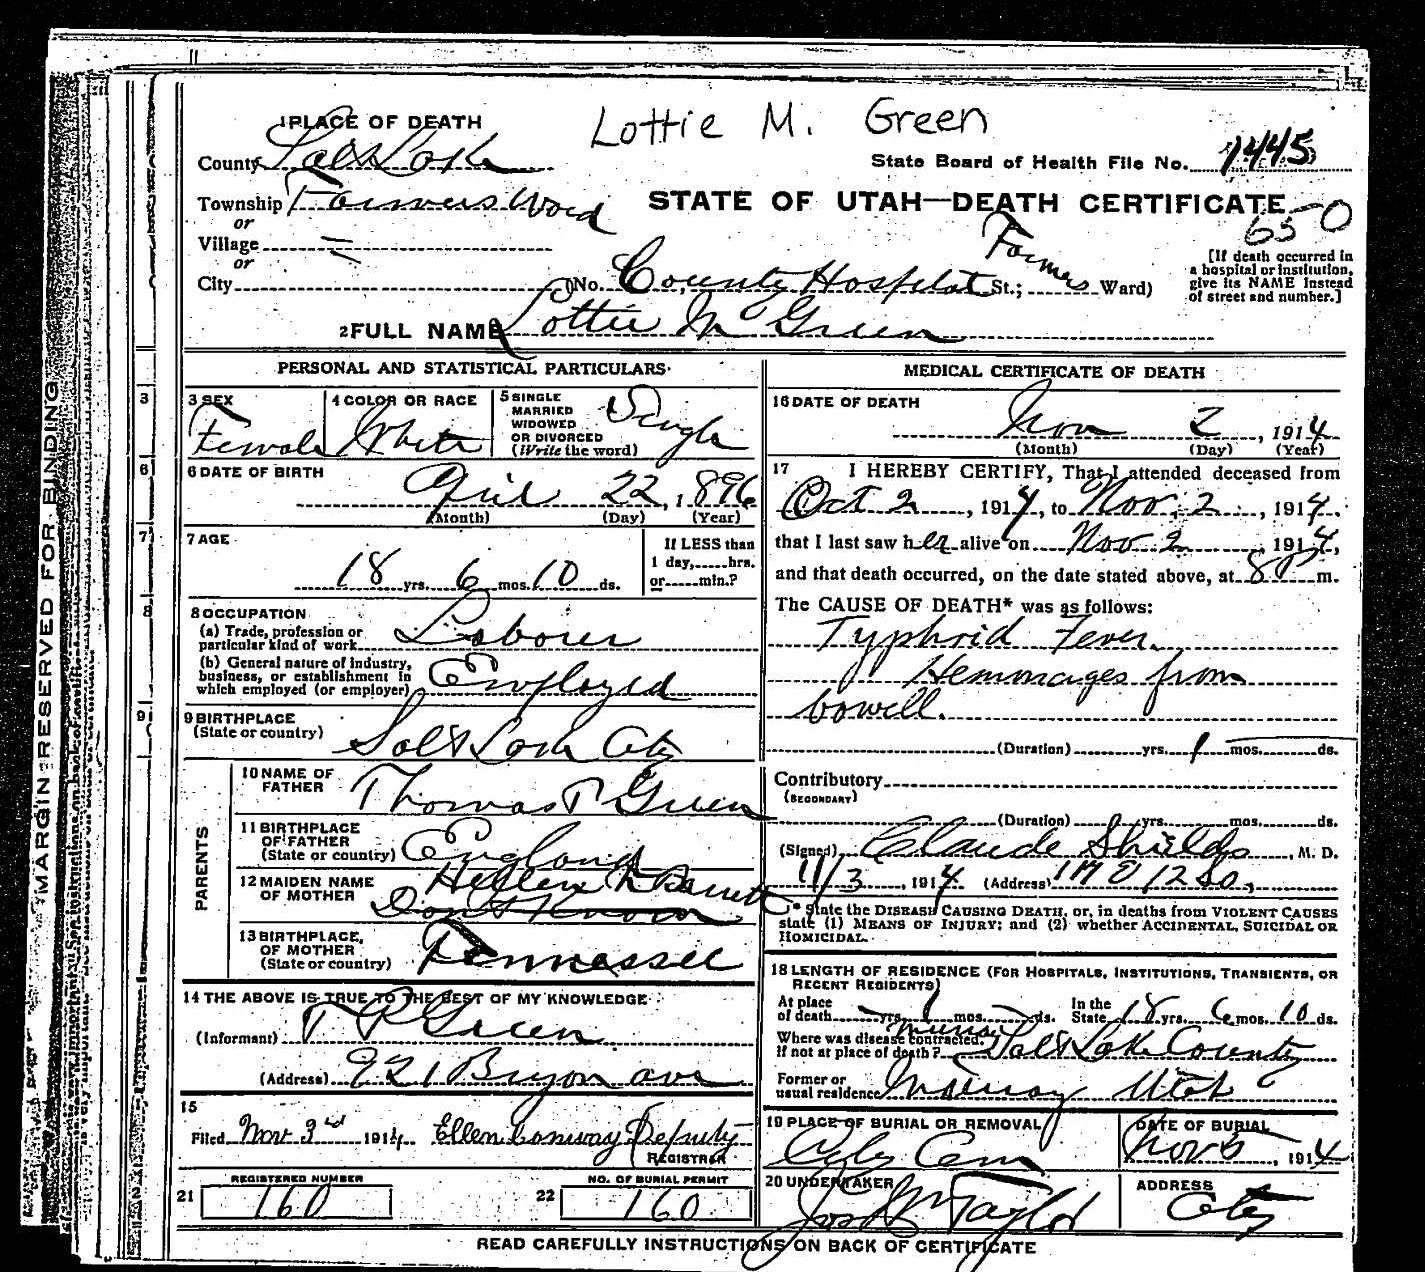 Lottie M. Green
1 PLACE OF DEATH
County Salt Lake
State Board of Health File No. 1445
Township Farmers Ward
STATE OF UTAH—DEATH CERTIFICATE
650
or
Village
or
City (No. County Hospital St.; Farmers Ward)
[If death occurred in
a hospital or institution,
give its NAME instead
of street and number.]
2 FULL NAME Lottie M Green
PERSONAL AND STATISTICAL PARTICULARS
3 SEX Female
4 COLOR OR RACE White
5 SINGLE
MARRIED
WIDOWED
OR DIVORCED
(Write the word) Single
6 DATE OF BIRTH
April 22, 1896
(Month) (Day) (Year)
7 AGE
18 yrs. 6 mos. 10 ds.
If LESS than
1 day, hrs.
or min.?
8 OCCUPATION
(a) Trade, profession or
particular kind of work Laborer
(b) General nature of industry,
business, or establishment in
which employed (or employer) Employed
9 BIRTHPLACE
(State or country) Salt Lake City
PARENTS
10 NAME OF
FATHER Thomas P Green
11 BIRTHPLACE
OF FATHER
(State or country) England
12 MAIDEN NAME
OF MOTHER Barrett
Don't Know
13 BIRTHPLACE
OF MOTHER
(State or country) Tennessee
14 THE ABOVE IS TRUE TO THE BEST OF MY KNOWLEDGE
(Informant) T P Green
(Address) 921 Bryon ave
15
Filed Nov 3rd 1914 Ellen Conway Deputy
REGISTRAR
REGISTERED NUMBER
21 160
NO. OF BURIAL PERMIT
22 160
MEDICAL CERTIFICATE OF DEATH
16 DATE OF DEATH
Nov 2, 1914
(Month) (Day) (Year)
17 I HEREBY CERTIFY, That I attended deceased from
Oct 2, 1914, to Nov. 2, 1914,
that I last saw her alive on Nov 2, 1914,
and that death occurred, on the date stated above, at 8 P m.
The CAUSE OF DEATH* was as follows:
Typhoid Fever.
Hemorrages from
bowell.
(Duration) yrs. 1 mos. ds.
Contributory
(SECONDARY)
(Duration) yrs. mos. ds.
(Signed) Claude Shields, M. D.
11/3, 1914 (Address) 1200,
* State the DISEASE CAUSING DEATH, or, in deaths from VIOLENT CAUSES
state (1) MEANS OF INJURY; and (2) whether ACCIDENTAL, SUICIDAL OR
HOMICIDAL.
18 LENGTH OF RESIDENCE (FOR HOSPITALS, INSTITUTIONS, TRANSIENTS, OR
RECENT RESIDENTS)
At place
of death yrs. 1 mos. ds. In the
State 18 yrs. 6 mos. 10 ds.
Where was disease contracted,
if not at place of death? Murray Salt Lake County
Former or
usual residence Murray Utah
19 PLACE OF BURIAL OR REMOVAL
City Cem
DATE OF BURIAL
Nov 5, 1914
20 UNDERTAKER
Jos Wm Taylor
ADDRESS
City
READ CAREFULLY INSTRUCTIONS ON BACK OF CERTIFICATE
MARGIN RESERVED FOR BINDING
3
6
7
8
9